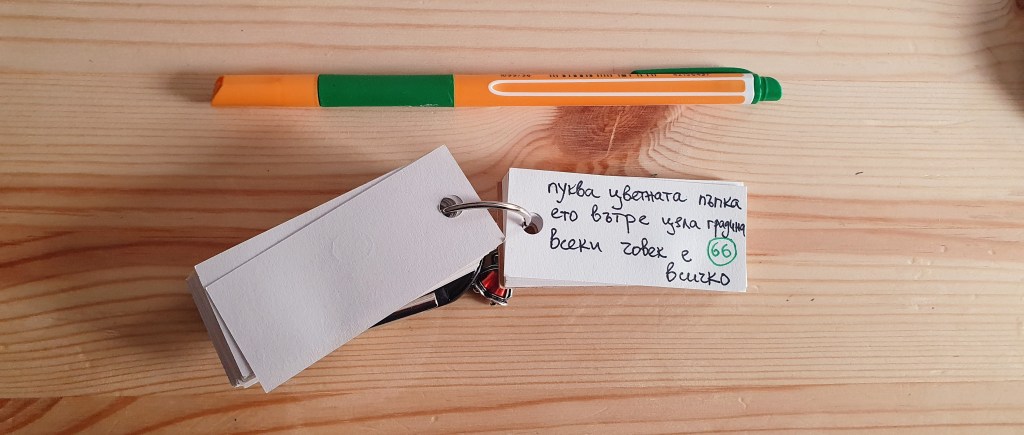 пуква цветната пъпка
ето вътре цяла градина
всеки човек е 66
всичко